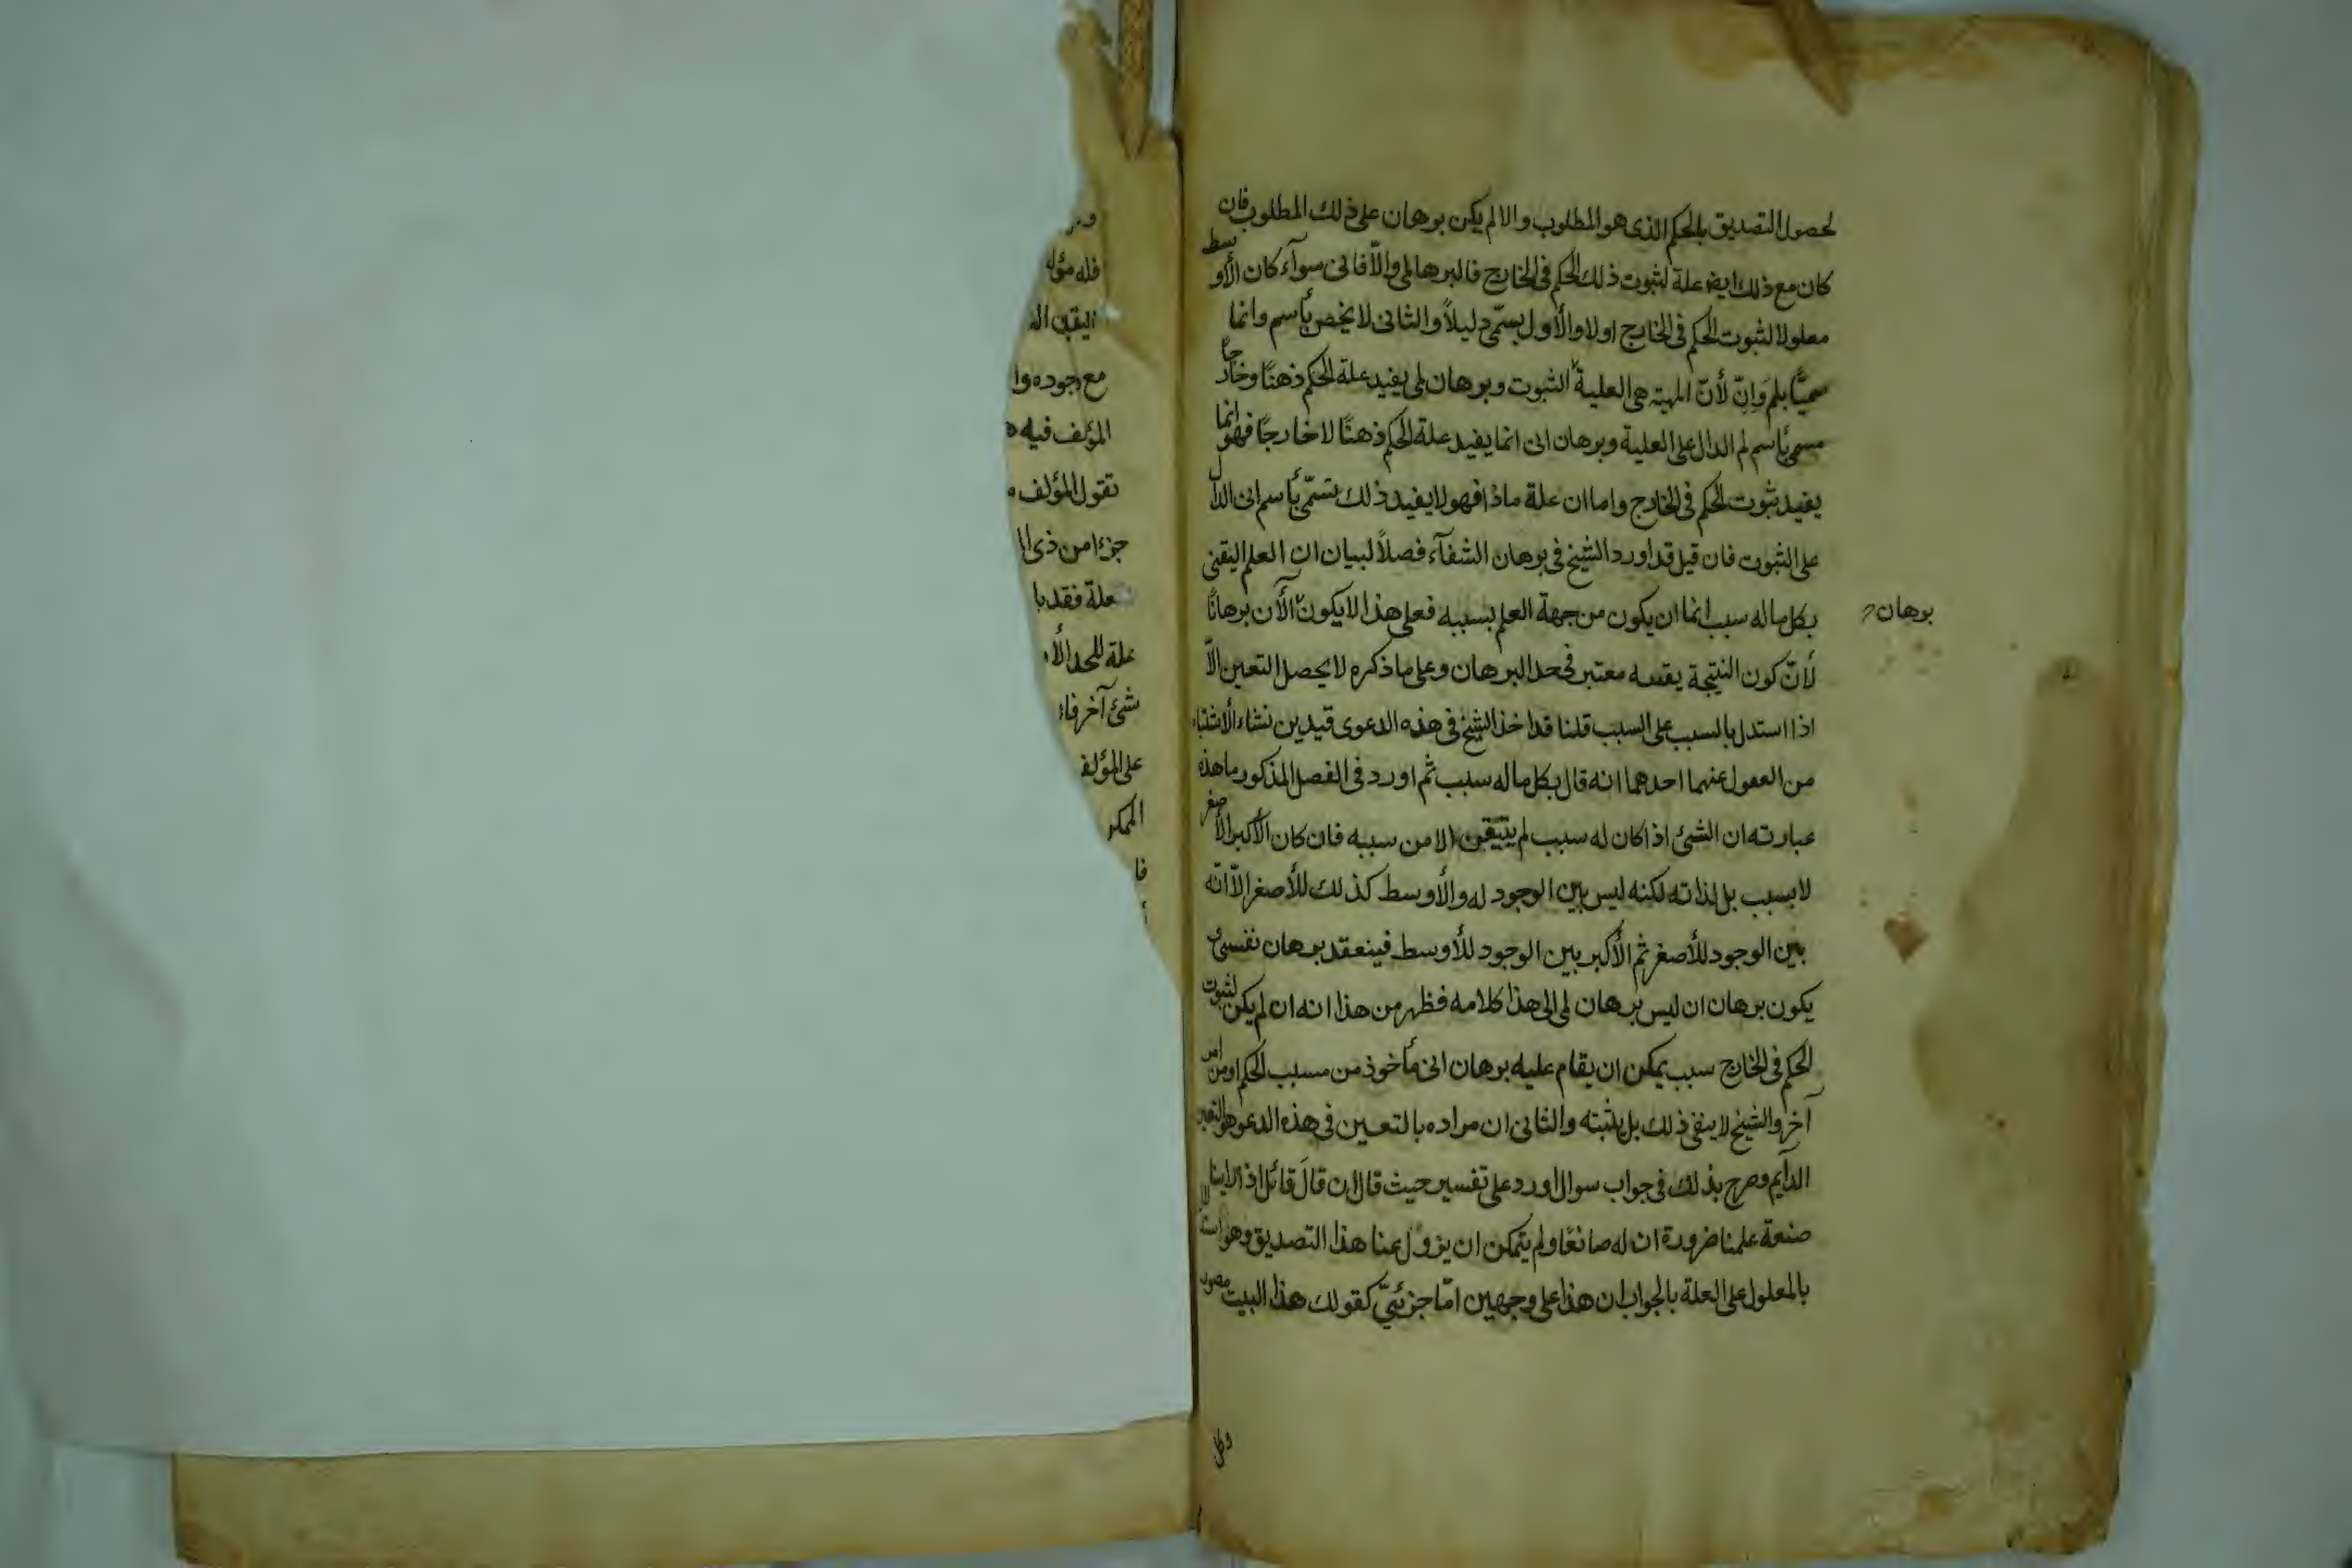 لحصول التصديق بالحكم الذى هو المطلوب والا لم يكن برهان على ذلك المطلوب فان
كان مع ذلك ايضا علة لثبوت ذلك الحكم فى الخارج فالبرهان لمى والّا فانى سوآء كان الأوسط
معلولا لثبوت الحكم فى الخارج اولا والأول يسمّى دليلاً والثانى لا يخص بأسم وانما
سميّا بلم وانّ لأنّ اللمية هى العلية الثبوت وبرهان لمى يفيد علة الحكم ذهنًا وخارجًا
مسمى بأسم لم الدال على العلية وبرهان انى انما يفيد علة الحكم ذهنًا لا خارجًا فهو انما
يفيد ثبوت الحكم فى الخارج واما ان علة ماذا فهو لا يفيد ذلك يتسمّى بأسم انى الدال
على الثبوت فان قيل قد اورد الشيخ فى برهان الشفآء فصلاً لبيان ان العلم اليقنى
بكل ماله سبب انما ان يكون من جهة العلم بسببه فعلى هذا لا يكون الأن برهانًا
برهان
لأنّ كون النتيجة يقينيه معتبر فى حد البرهان وعلى ما ذكره لا يحصل التعين الّا
اذا استدل بالسبب على السبب قلنا قد اخذ الشيخ فى هذه الدعوى قيدين نشاء الأشتباه
من العفول عنهما احدهما انه قال بكل ماله سبب ثم اورد فى الفصل المذكور ما هذه
عبارته ان الشئ اذا كان له سبب لم يتيقن الا من سببه فان كان الأكبر الأصغر
لا بسبب بل لذاته لكنه ليس بين الوجود له والأوسط كذلك للأصغر الّا انّه
بين الوجود للأصغر ثم الأكبر بين الوجود للأوسط فينعقد برهان نفسى
يكون برهان ان ليس برهان لمى الى هذا كلامه فظهر من هذا انه ان لم يكن لثبوت
الحكم فى الخارج سبب يمكن ان يقام عليه برهان انى مأخوذ من مسبب الحكم او من امر
آخر والشيخ لا ينفى ذلك بل يثبته والثانى ان مراده بالتعين فى هذه الدعو هو التعين
الدآيم وصرح بذلك فى جواب سوال اورد على تفسير حيث قال ان قالَ قائل اذا راينا
صنعة علمنا ضرورة ان له صانعًا ولم يتمكن ان يزول عنا هذا التصديق وهو استدلال
بالمعلول على العلة بالجواب ان هذا على وجهين امّا جزئىّ كقولك هذا البيت مصور
وكل
فله مؤلف
اليقين
مع وجوده وا
المؤلف فيه
تقول المؤلف
جزءا من ذى ا
علة فقد با
علة للحد الأ
شئ آخر فا
على المؤلف
الممكن
فا